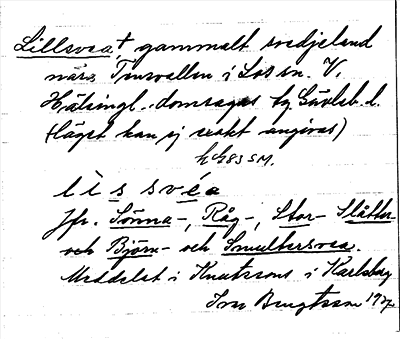 Lillsvea †, gammalt svedjeland
nära Tensvallen i Los sn. V.
Hälsingl. domsagas tg. Gävleb. l.
(läget kan ej exakt angivas)
SM.
l i s svéa
Jfr. Sönna-, Råg-, Stor- Slåtter-
och Björn- och Smultersvea.
Meddelat i Knutssons i Karlsberg
Ivar Bengtsson 1927